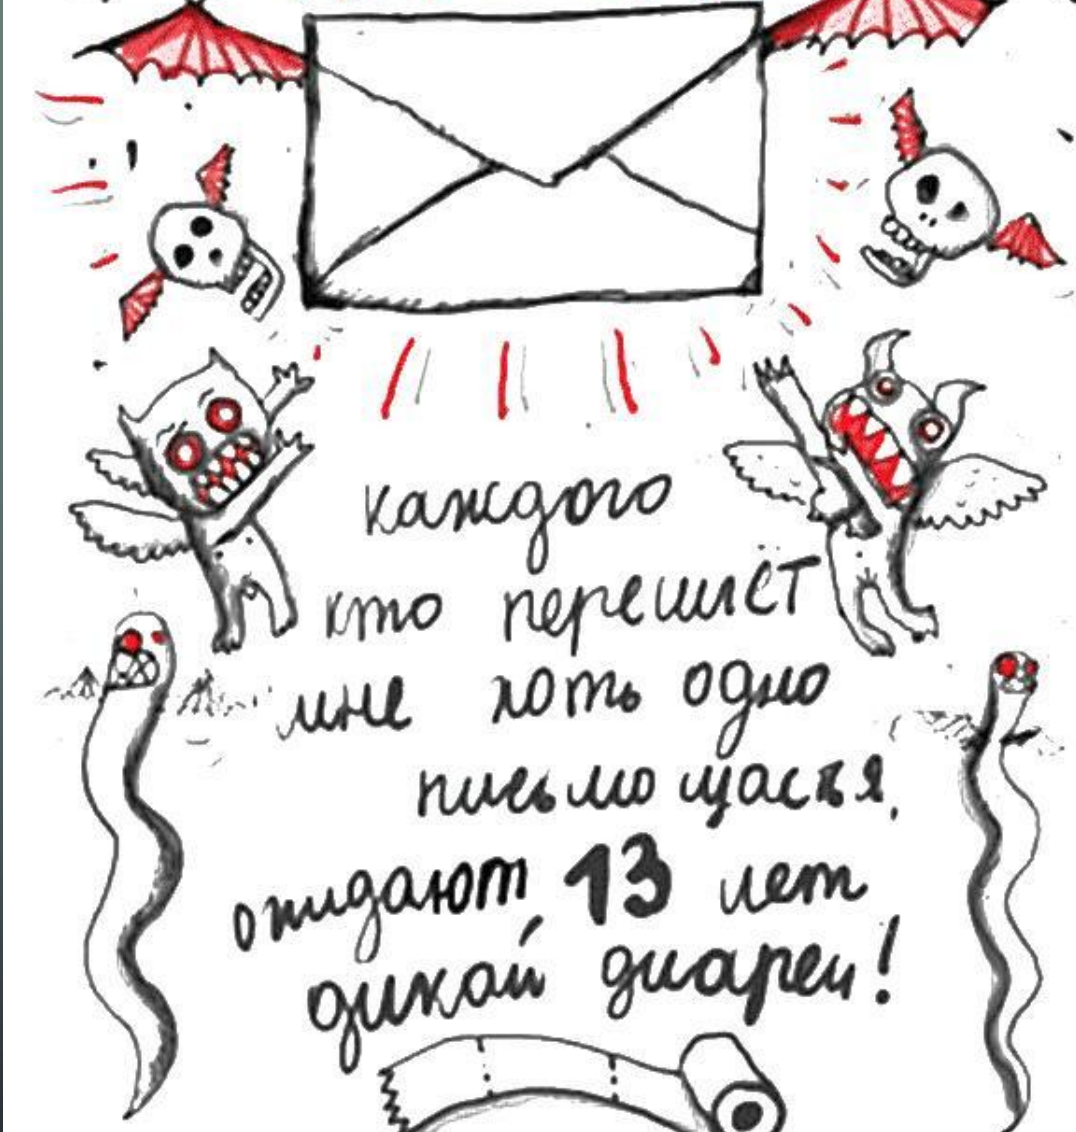 каждого
кто перешлёт
мне хоть одно
письмо щастья,
ожидают 13 лет
дикой диареи!